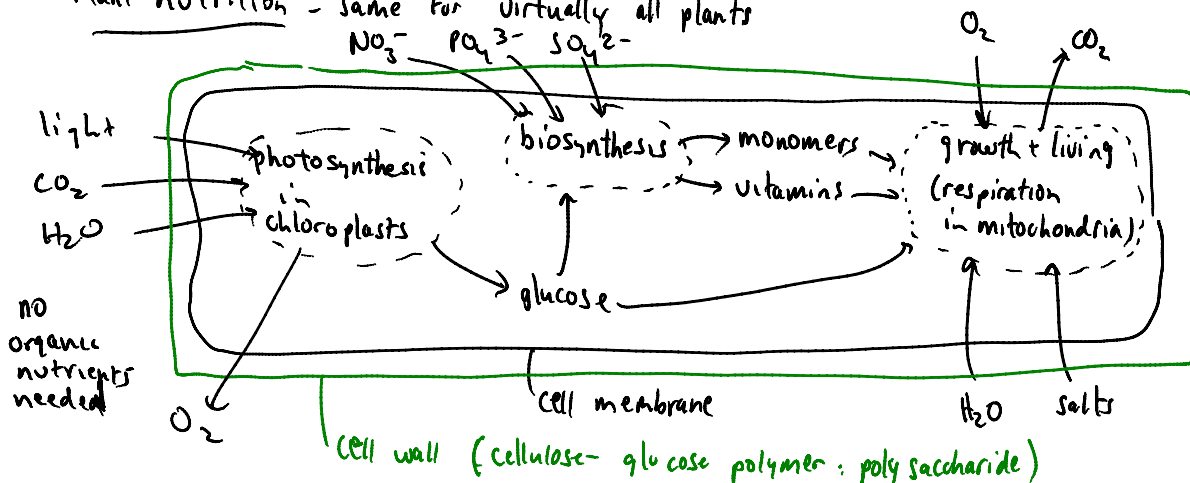 Plant nutrition - same for virtually all plants
NO₃⁻ PO₄³⁻ SO₄²⁻
O₂ CO₂
light
CO₂
H₂O
photosynthesis
in
chloroplasts
biosynthesis
monomers
vitamins
growth + living
(respiration
in mitochondria)
glucose
no
organic
nutrients
needed
O₂
cell membrane
H₂O salts
cell wall (cellulose- glucose polymer: polysaccharide)